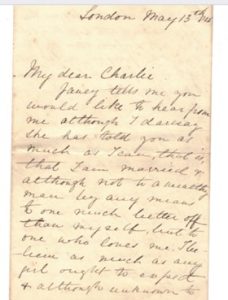 London May 13th
My dear Charlie
Janey tells me you
would like to hear from
me although I daresay
she has told you as
much as I can, that is,
that I am married &
although not to a wealthy
man by any means
to one much better off
than myself, but to
one who loves me. I be-
lieve as much as any
girl ought to expect
& although unknown to